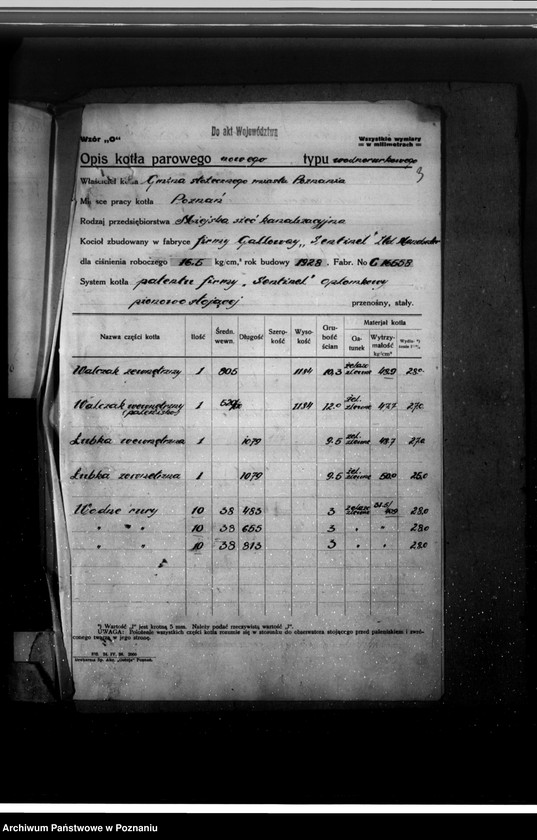 Do akt Województwa
Wzór „O"
Wszystkie wymiary
w milimetrach
Opis kotła parowego nowego typu wodnorurkowego
3
Właściciel kotła Gmina stołecznego miasta Poznania
Miejsce pracy kotła Poznań
Rodzaj przedsiębiorstwa Miejska sieć kanalizacyjna
Kocioł zbudowany w fabryce firmy Galloway „Sentinel" Ltd Manchester
dla ciśnienia roboczego 16.5 kg/cm,² rok budowy 1928, Fabr. No G 16658
System kotła patentu firmy „Sentinel" opłomkowy
pionowo stojący przenośny, stały.
Nazwa części kotła Ilość Średn. wewn. Długość Szerokość Wysokość Grubość ścian Materjał kotła
Gatunek Wytrzymałość kg/cm²
Walczak zewnętrzny 1 805 1134 10,3 żelazo zlewne 48.9 28.0
Walczak wewnętrzny 1 1134 12.0 żel. zlewne 47.7 27.0
Łubka wewnętrzna 1 1079 9.5 żel. zlewne 48.7 27.0
Łubka zewnętrzna 1 1079 9.5 żel. zlewne 50.0 25.0
Wodne rury 10 38 483 3 żelazo zlewne 28.0
" " 10 38 655 3 " " 28.0
" " 10 38 813 3 " " 28.0
*) Wartość „l" jest krotną 5 mm. Należy podać rzeczywistą wartość „l".
UWAGA: Położenie wszystkich części kotła rozumie się w stosunku do obserwatora stojącego przed paleniskiem i zwróconego twarzą w jego stronę.
Archiwum Państwowe w Poznaniu